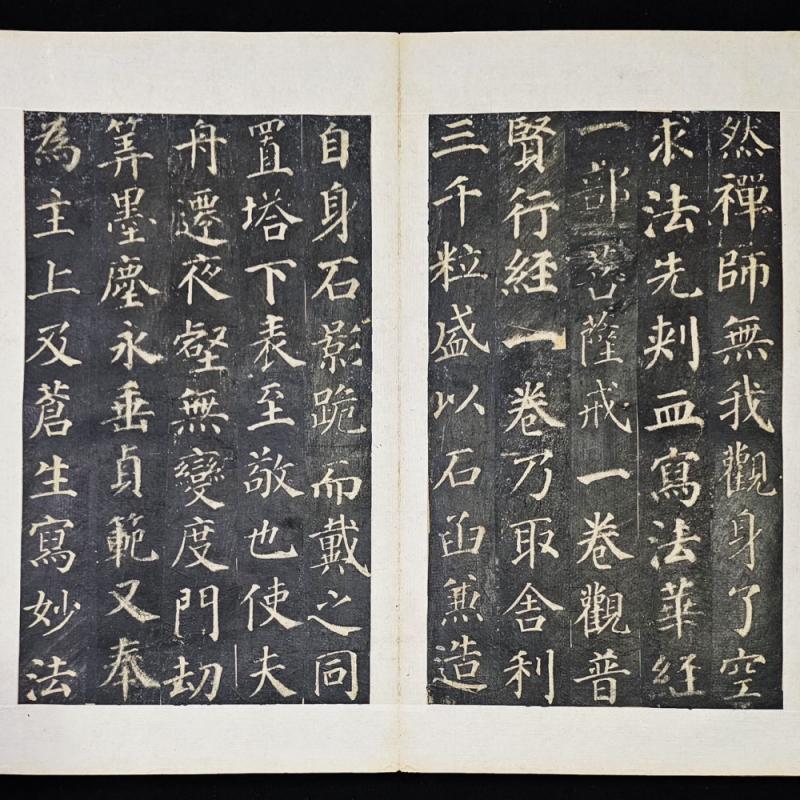 然禪師無我觀身了空
求法先刾血寫法華経
一部菩薩戒一卷觀普
賢行経一卷乃取舎利
三千粒盛以石函兼造
自身石影跪而戴之同
置塔下表至敬也使夫
舟遷夜壑無變度門劫
筭墨塵永垂貞範又奉
為主上及蒼生寫妙法